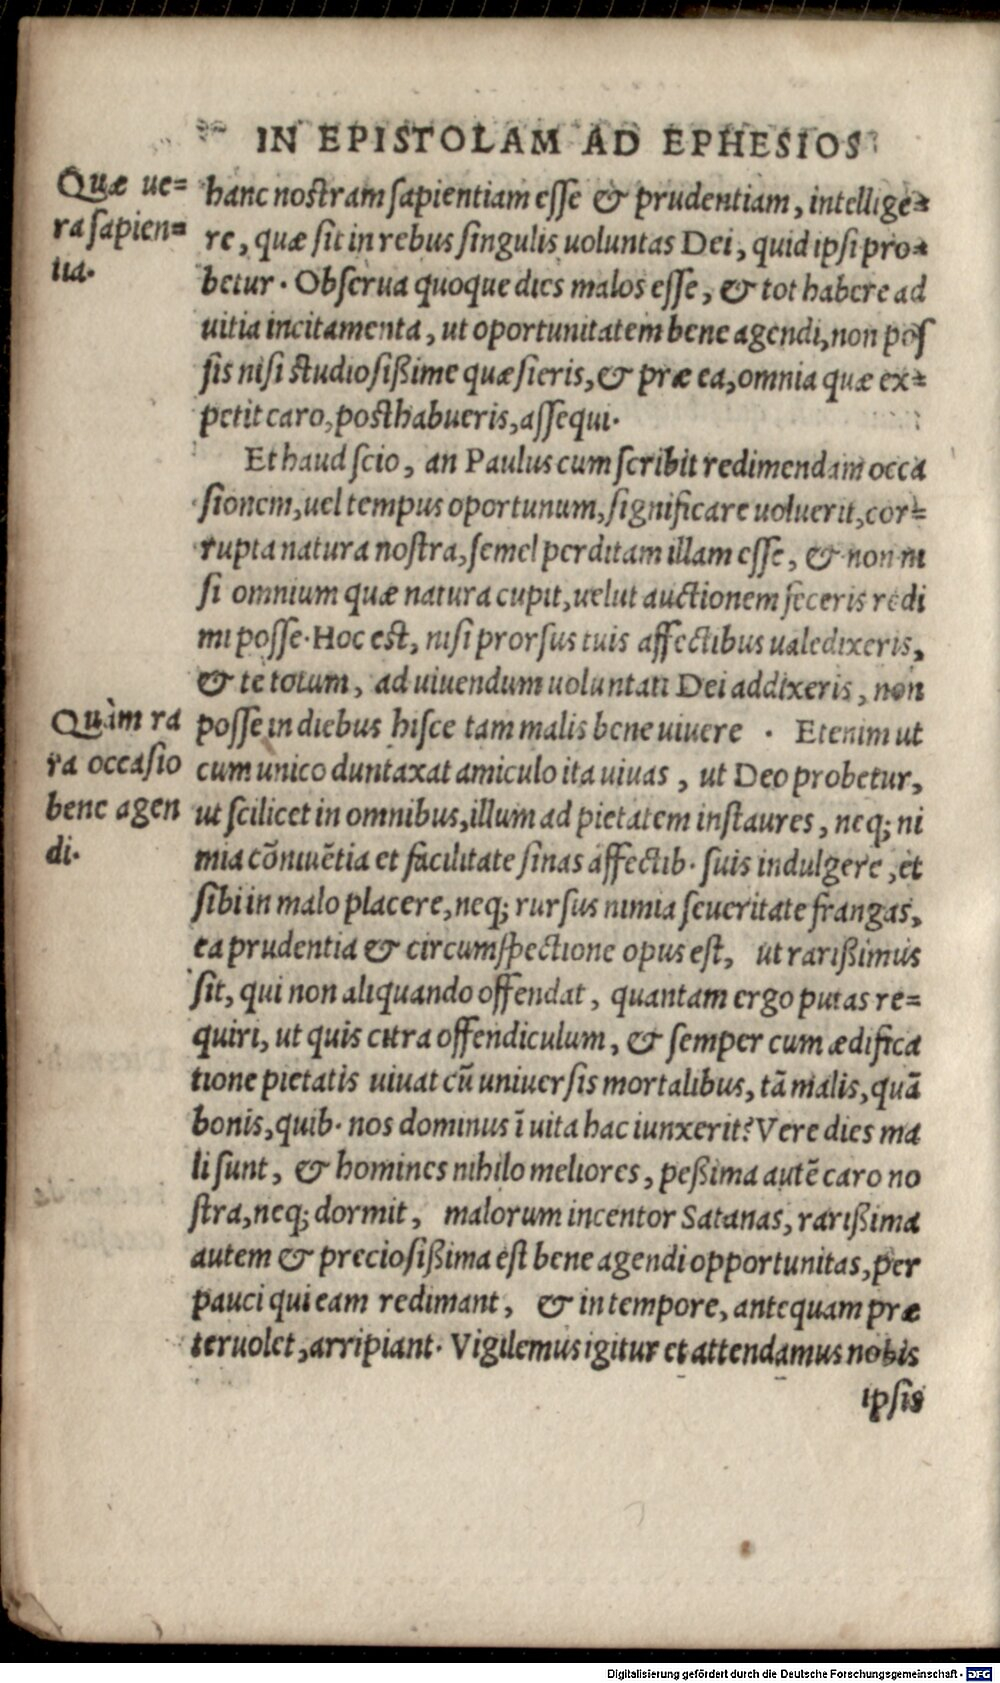 IN EPISTOLAM AD EPHESIOS
Quæ ue=
ra sapien=
tia.
hanc nostram sapientiam esse & prudentiam, intellige=
re, quæ sit in rebus singulis uoluntas Dei, quid ipsi pro=
betur. Obserua quoque dies malos esse, & tot habere ad
uitia incitamenta, ut oportunitatem bene agendi, non pos
sis nisi studiosißime quæsieris, & præ ea, omnia quæ ex=
petit caro, posthabueris, assequi.
Et haud scio, an Paulus cum scribit redimendam occa
sionem, uel tempus oportunum, significare uoluerit, cor=
rupta natura nostra, semel perditam illam esse, & non ni
si omnium quæ natura cupit, uelut auctionem feceris redi
mi posse. Hoc est, nisi prorsus tuis affectibus ualedixeris,
& te totum, ad uiuendum uoluntati Dei addixeris, non
Quàm ra
ra occasio
bene agen
di.
posse in diebus hisce tam malis bene uiuere . Etenim ut
cum unico duntaxat amiculo ita uiuas, ut Deo probetur,
ut scilicet in omnibus, illum ad pietatem instaures, neq; ni
mia cōniuētia et facilitate sinas affectib. suis indulgere, et
sibi in malo placere, neq; rursus nimia seueritate frangas,
ea prudentia & circumspectione opus est, ut rarißimus
sit, qui non aliquando offendat, quantam ergo putas re=
quiri, ut quis citra offendiculum, & semper cum ædifica
tione pietatis uiuat cū uniuersis mortalibus, tā malis, quā
bonis, quib. nos dominus ī uita hac iunxerit? Vere dies ma
li sunt, & homines nihilo meliores, peßima autē caro no
stra, neq; dormit, malorum incentor Satanas, rarißima
autem & preciosißima est bene agendi opportunitas, per
pauci qui eam redimant, & in tempore, antequam præ
teruolet, arripiant. Vigilemus igitur et attendamus nobis
ipsis
Digitalisierung gefördert durch die Deutsche Forschungsgemeinschaft - DFG